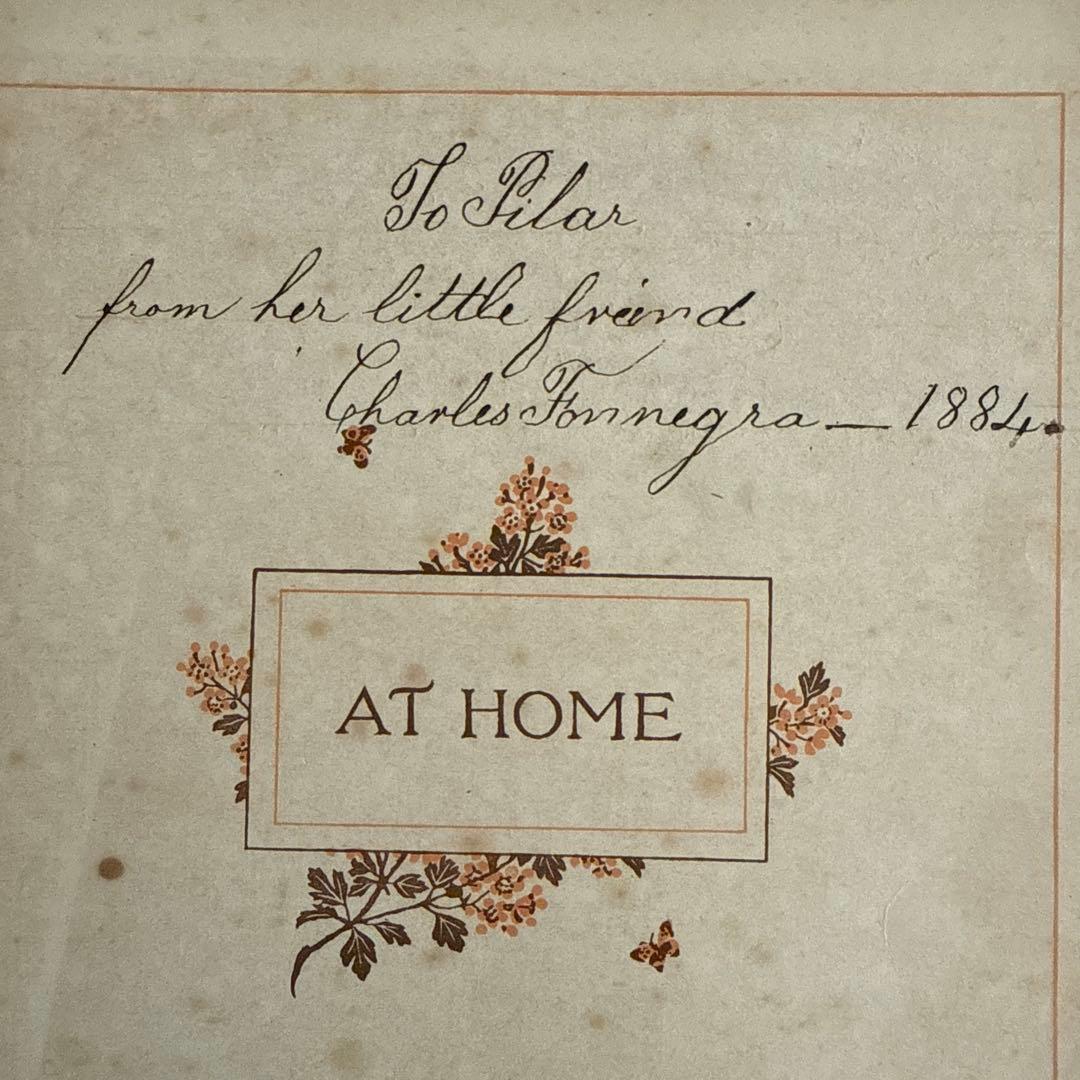 To Pilar
from her little freind
Charles Fonnegra — 1884.
AT HOME